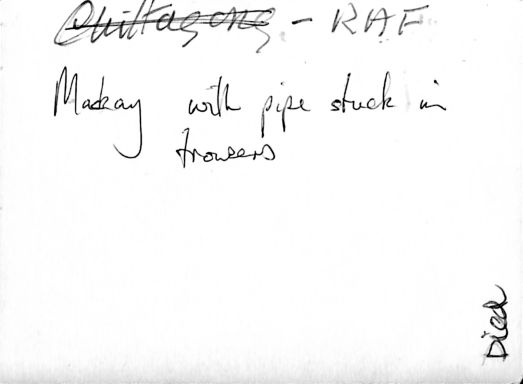 Chittagong - RAF
Mackay with pipe stuck in
trousers
Died